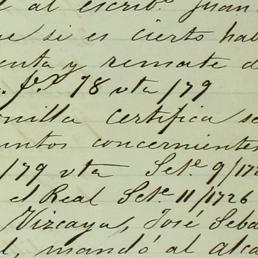 al escribº Juan
se si es cierto hab
enta y remate d
. fs. 78 vta /79
onilla certifica se
untos concernientes
/79 vta Sete. 9/172
el Real Sete. 11/1726
Vizcaya, José Seba
l, mandó al Alca